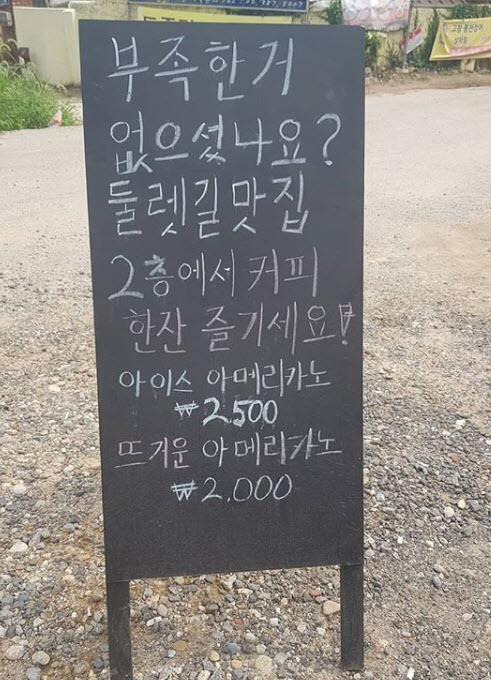 부족한거
없으셨나요?
둘렛길맛집
2층에서 커피
한잔 즐기세요!
아이스 아메리카노
₩2,500
뜨거운 아메리카노
₩2,000